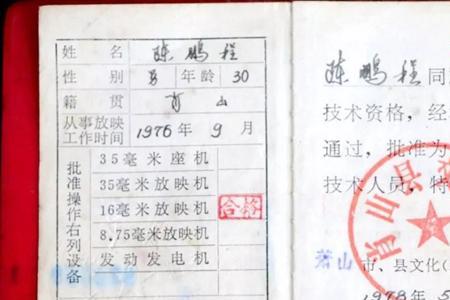 姓名 陈鹏程
性别 男 年龄 30
籍贯 肖山
从事放映工作时间 1976年9月
批准操作右列设备
35毫米座机
35毫米放映机
16毫米放映机 合格
8.75毫米放映机
发动发电机
陈鹏程同
技术资格，经
通过，批准为
技术人员，特
萧山市、县文化(
1978 5